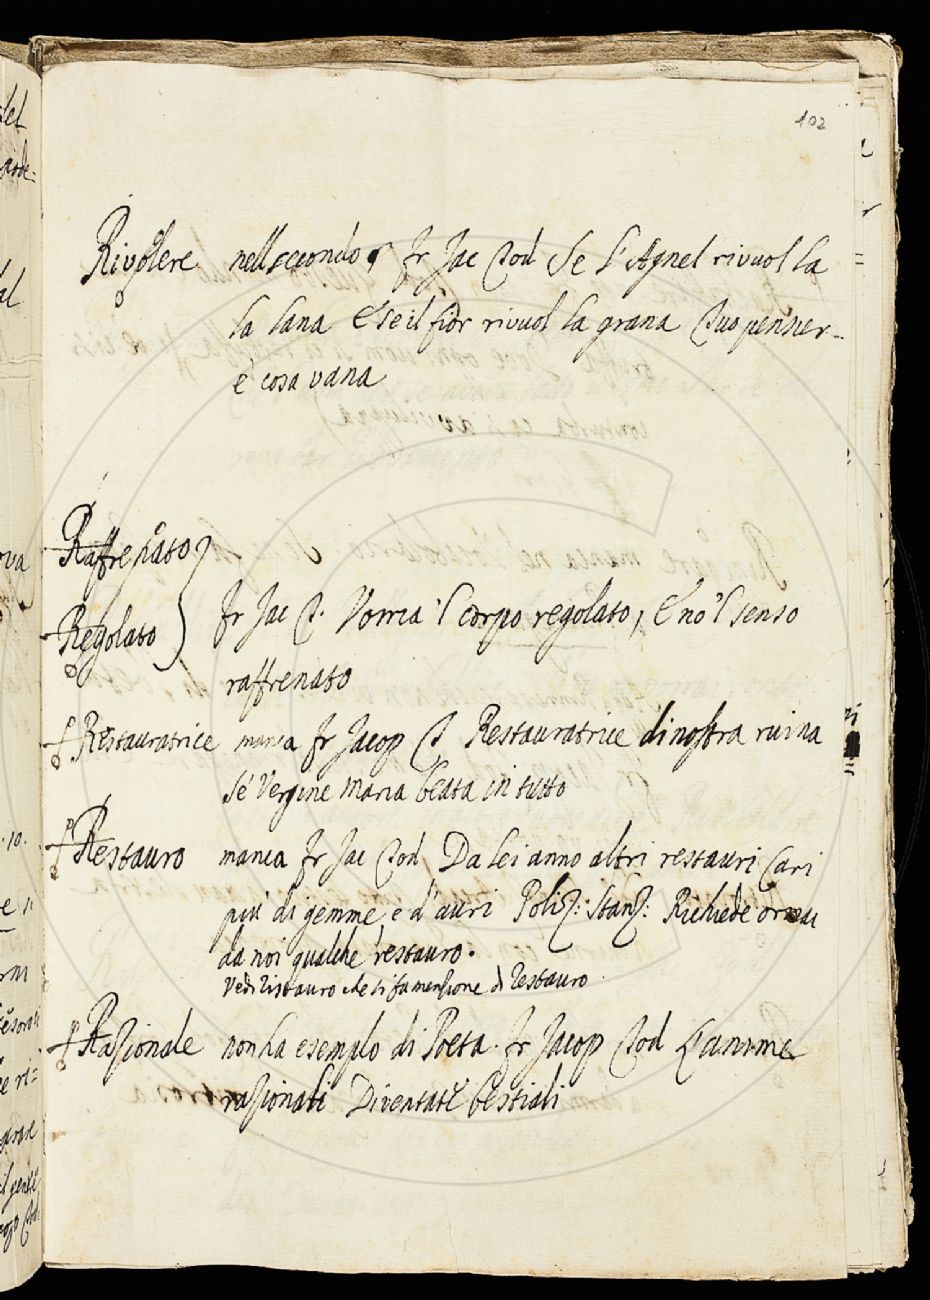 102
Rivolere nell secondo Fr Jac Tod Se l'Agnel rivuol la
la lana E se il fior rivuol la grana Tuo penser-
è cosa vana
Raffrenato
Regolato Fr Jac T. Vorria 'l corpo regolato, E no 'l senso
raffrenato
Restauratrice manca Fr Jacop T Restauratrice di nostra ruina
Se' Vergine Maria beata in tutto
Restauro manca Fr Jac Tod Da lei anno altri restauri Cari
più di gemme e d'auri Poliz: Stanz: Richiede ormai
da noi qualche restauro.
Vedi Ristauro che si fa menzione di Restauro
Razionale non ha esempio di Poeta. Fr Jacop Tod L'anime
razionali Diventate bestiali